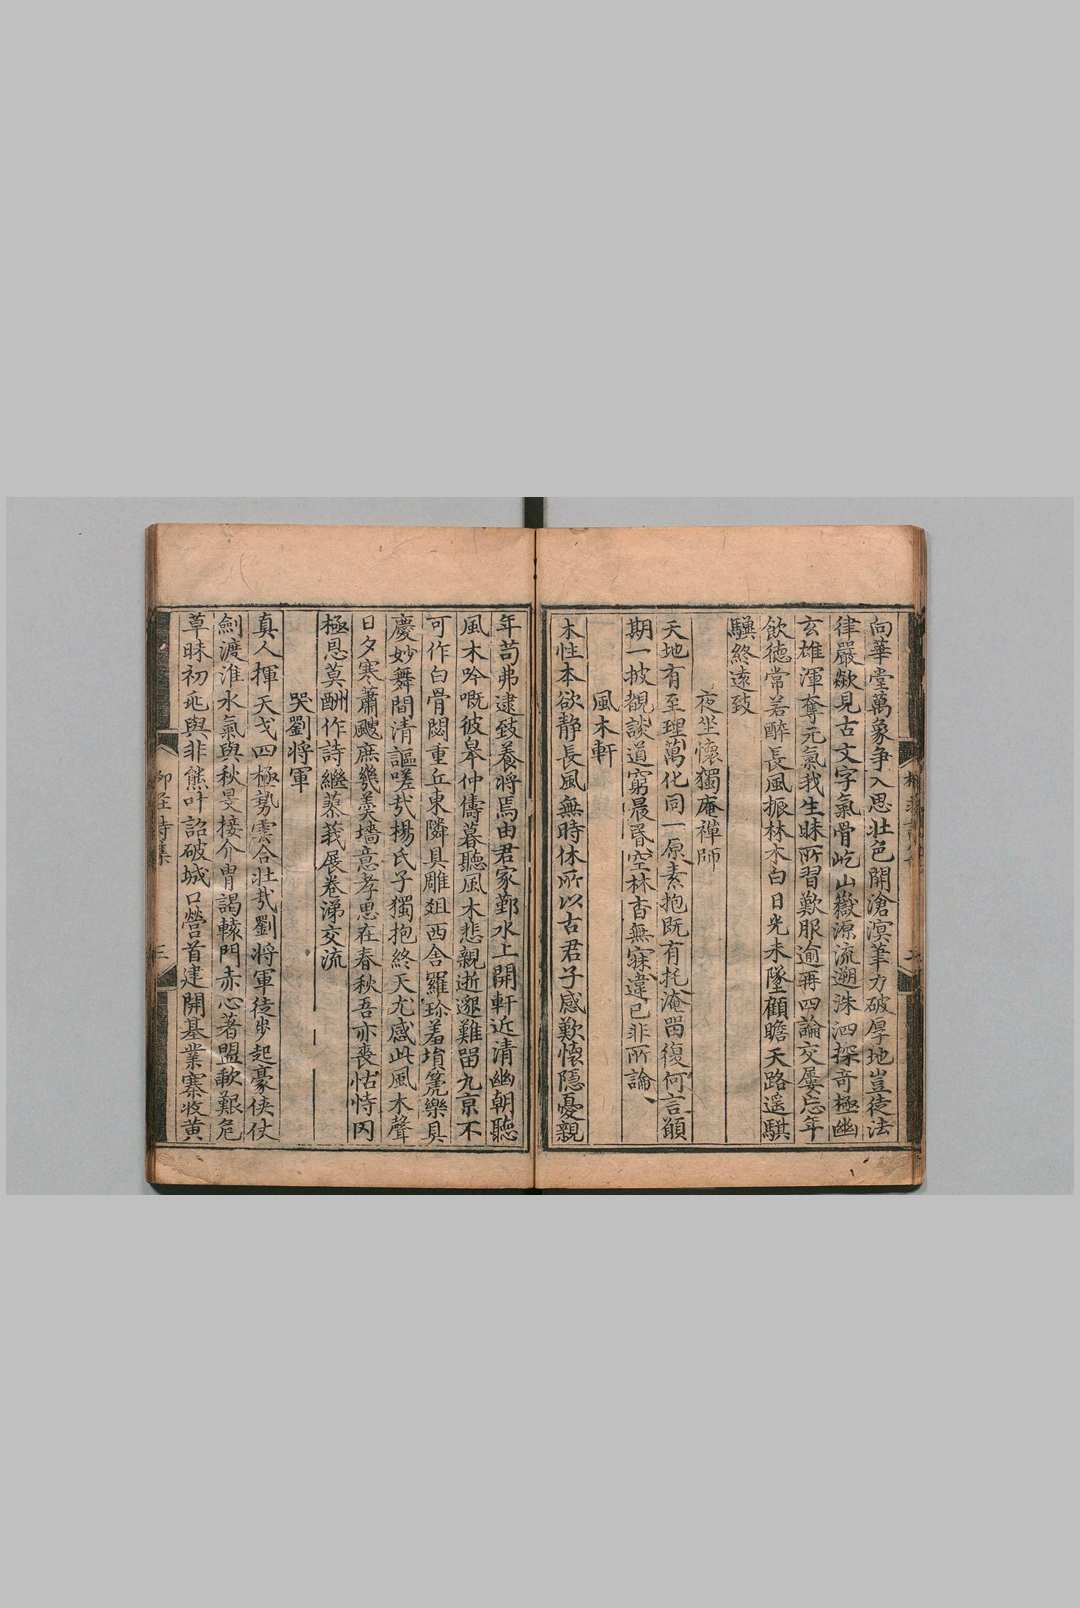 向華堂萬象爭入思壯色開滄溟筆力破厚地豈徒法
律嚴歘見古文字氣骨屹山嶽源流遡洙泗探奇極幽
玄雄渾奪元氣我生昧所習歎服逾再四論交屡忘年
飲德常若醉長風振林木白日光未墜顧瞻天路遥騏
驥終遠致
夜坐懷獨庵禪師
天地有至理萬化同一原素抱既有托淹留復何言顧
期一披覩談道窮晨昏空林杳無寐違已非所論
風木軒
木性本欲静長風無時休所以古君子感歎懷隱憂親
年苟弗逮致養將焉由君家鄞水上開軒近清幽朝聽
風木吟嘅彼皋仲儔暮聽風木悲親逝邈難留九京不
可作白骨閟重丘東隣具雕俎西舍羅珍羞塤箎樂具
慶妙舞間清謳嗟㢤楊氏子獨抱終天尤感此風木聲
日夕寒蕭颼庶幾羮墻意孝思在春秋吾亦喪怙恃罔
極恩莫酬作詩繼蓼莪展卷涕交流
哭劉將軍
真人揮天戈四極勢雲合壯㢤劉將軍徒步起豪俠仗
劍渡淮水氣與秋旻接介冑謁轅門赤心著盟歃艱危
草昧初兆與非熊叶詔破城口營首建開基業寨收黄
三